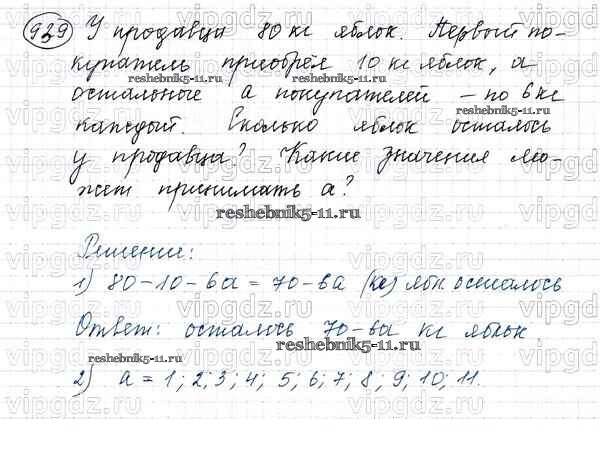 929 У продавца 80 кг яблок. Первый по-
купатель приобрёл 10 кг яблок, а
остальные а покупателей – по 6 кг
каждый. Сколько яблок осталось
у продавца? Какие значения мо-
жет принимать а?
reshebnik5-11.ru
Решение:
1) 80-10-6а = 70-6а (кг) ябл осталось
Ответ: осталось 70-6а кг яблок.
reshebnik5-11.ru
2) а = 1; 2; 3; 4; 5; 6; 7; 8; 9; 10; 11.
reshebnik5-11.ru
vipgdz.ru